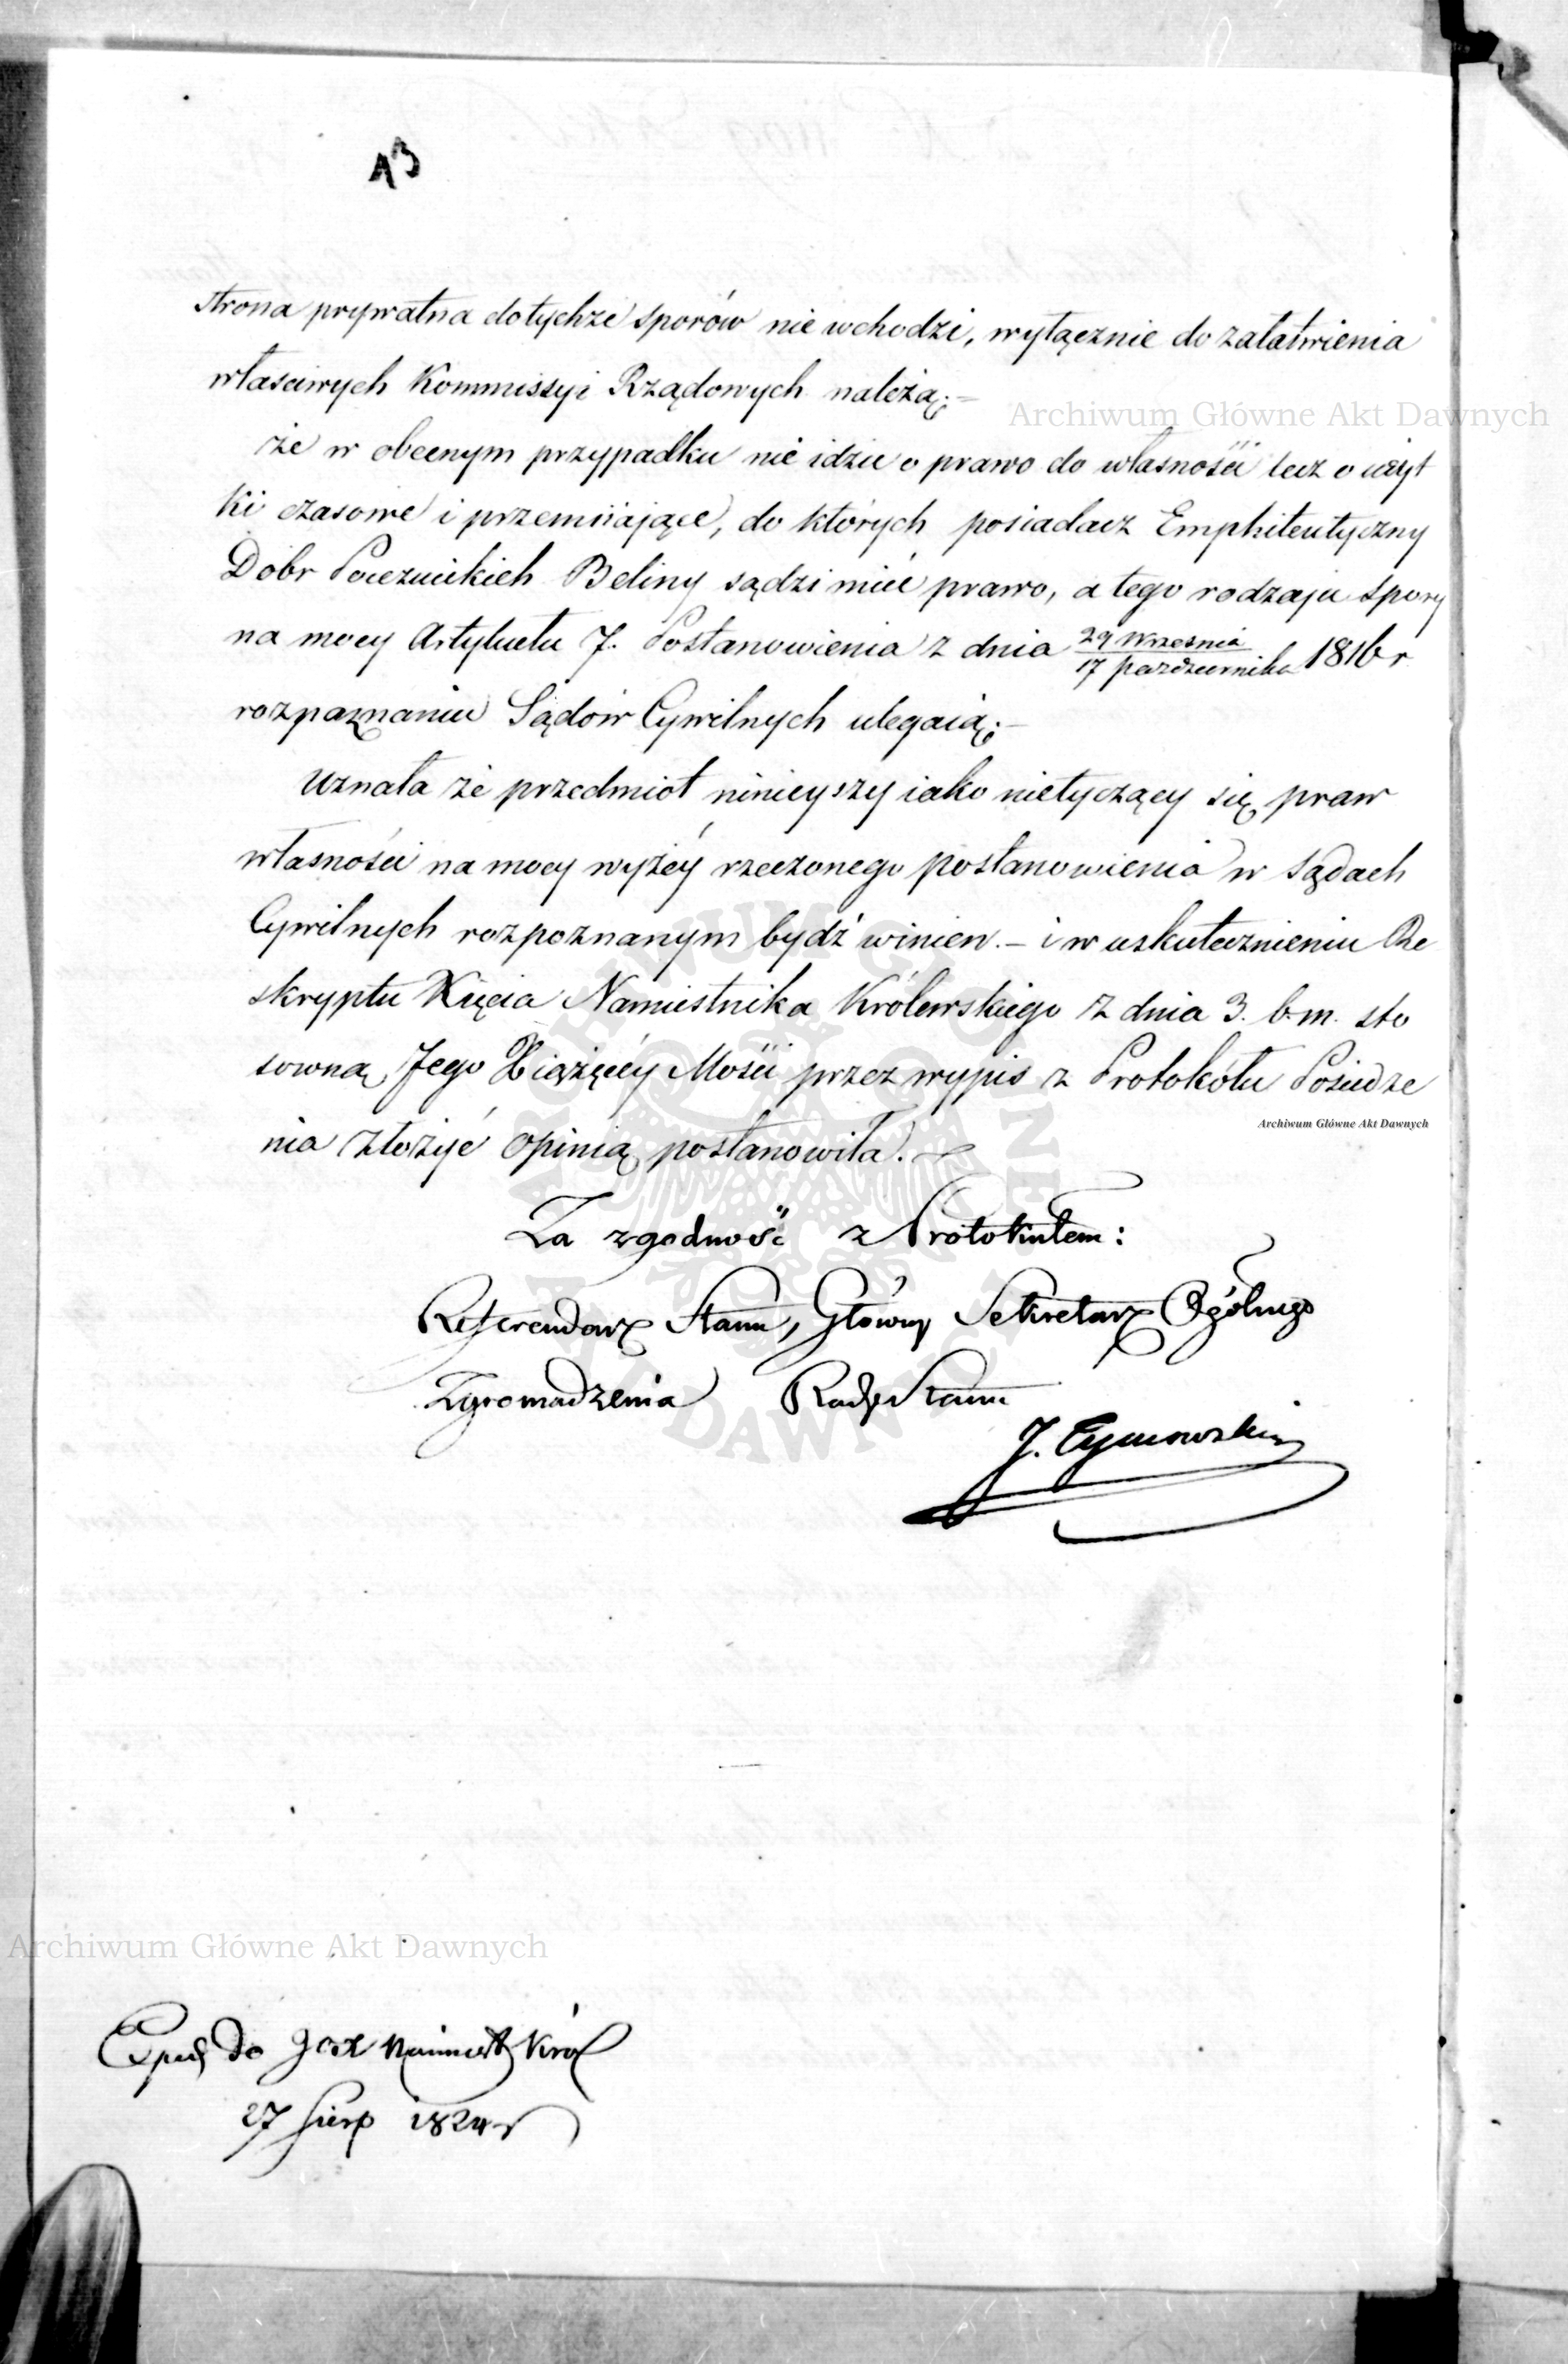 13
strona prywatna dotychże sporów nie wchodzi, wyłącznie do załatwienia
właściwych Kommissyi Rządowych należą;–
że w obecnym przypadku nie idzie o prawo do własności lecz o użyt
ki czasowe i przemiiające, do których posiadacz Emphiteutyczny
Dóbr Beliny sądzi mieć prawo, a tego rodzaju spory
na mocy Artykułu 7. Postanowienia z dnia 29 Września / 17 Października 1816 r
rozpaznaniu Sądów Cywilnych ulegaią;–
Uznała że przedmiot ninieyszy iako nietyczący się praw
własności na mocy wyżéy rzeczonego postanowienia w Sądach
Cywilnych rozpoznanym bydź winien.– i w uskutecznieniu Re
skryptu Xięcia Namiestnika Królewskiego z dnia 3. b.m. sto
sowną Jego Xiążęcéy Mości przez wypis z Protokółu Posiedze
nia złożyć opinią postanowiła.
Za zgodność z Protokułem:
Referendarz Stanu, Główny Sekretarz Ogólnego
Zgromadzenia Rady Stanu
J. Tymowski
do Namiest Król
27 Sierp 1824 r
Archiwum Główne Akt Dawnych
Archiwum Główne Akt Dawnych
Archiwum Główne Akt Dawnych
ARCHIWUM GŁÓWNE AKT DAWNYCH